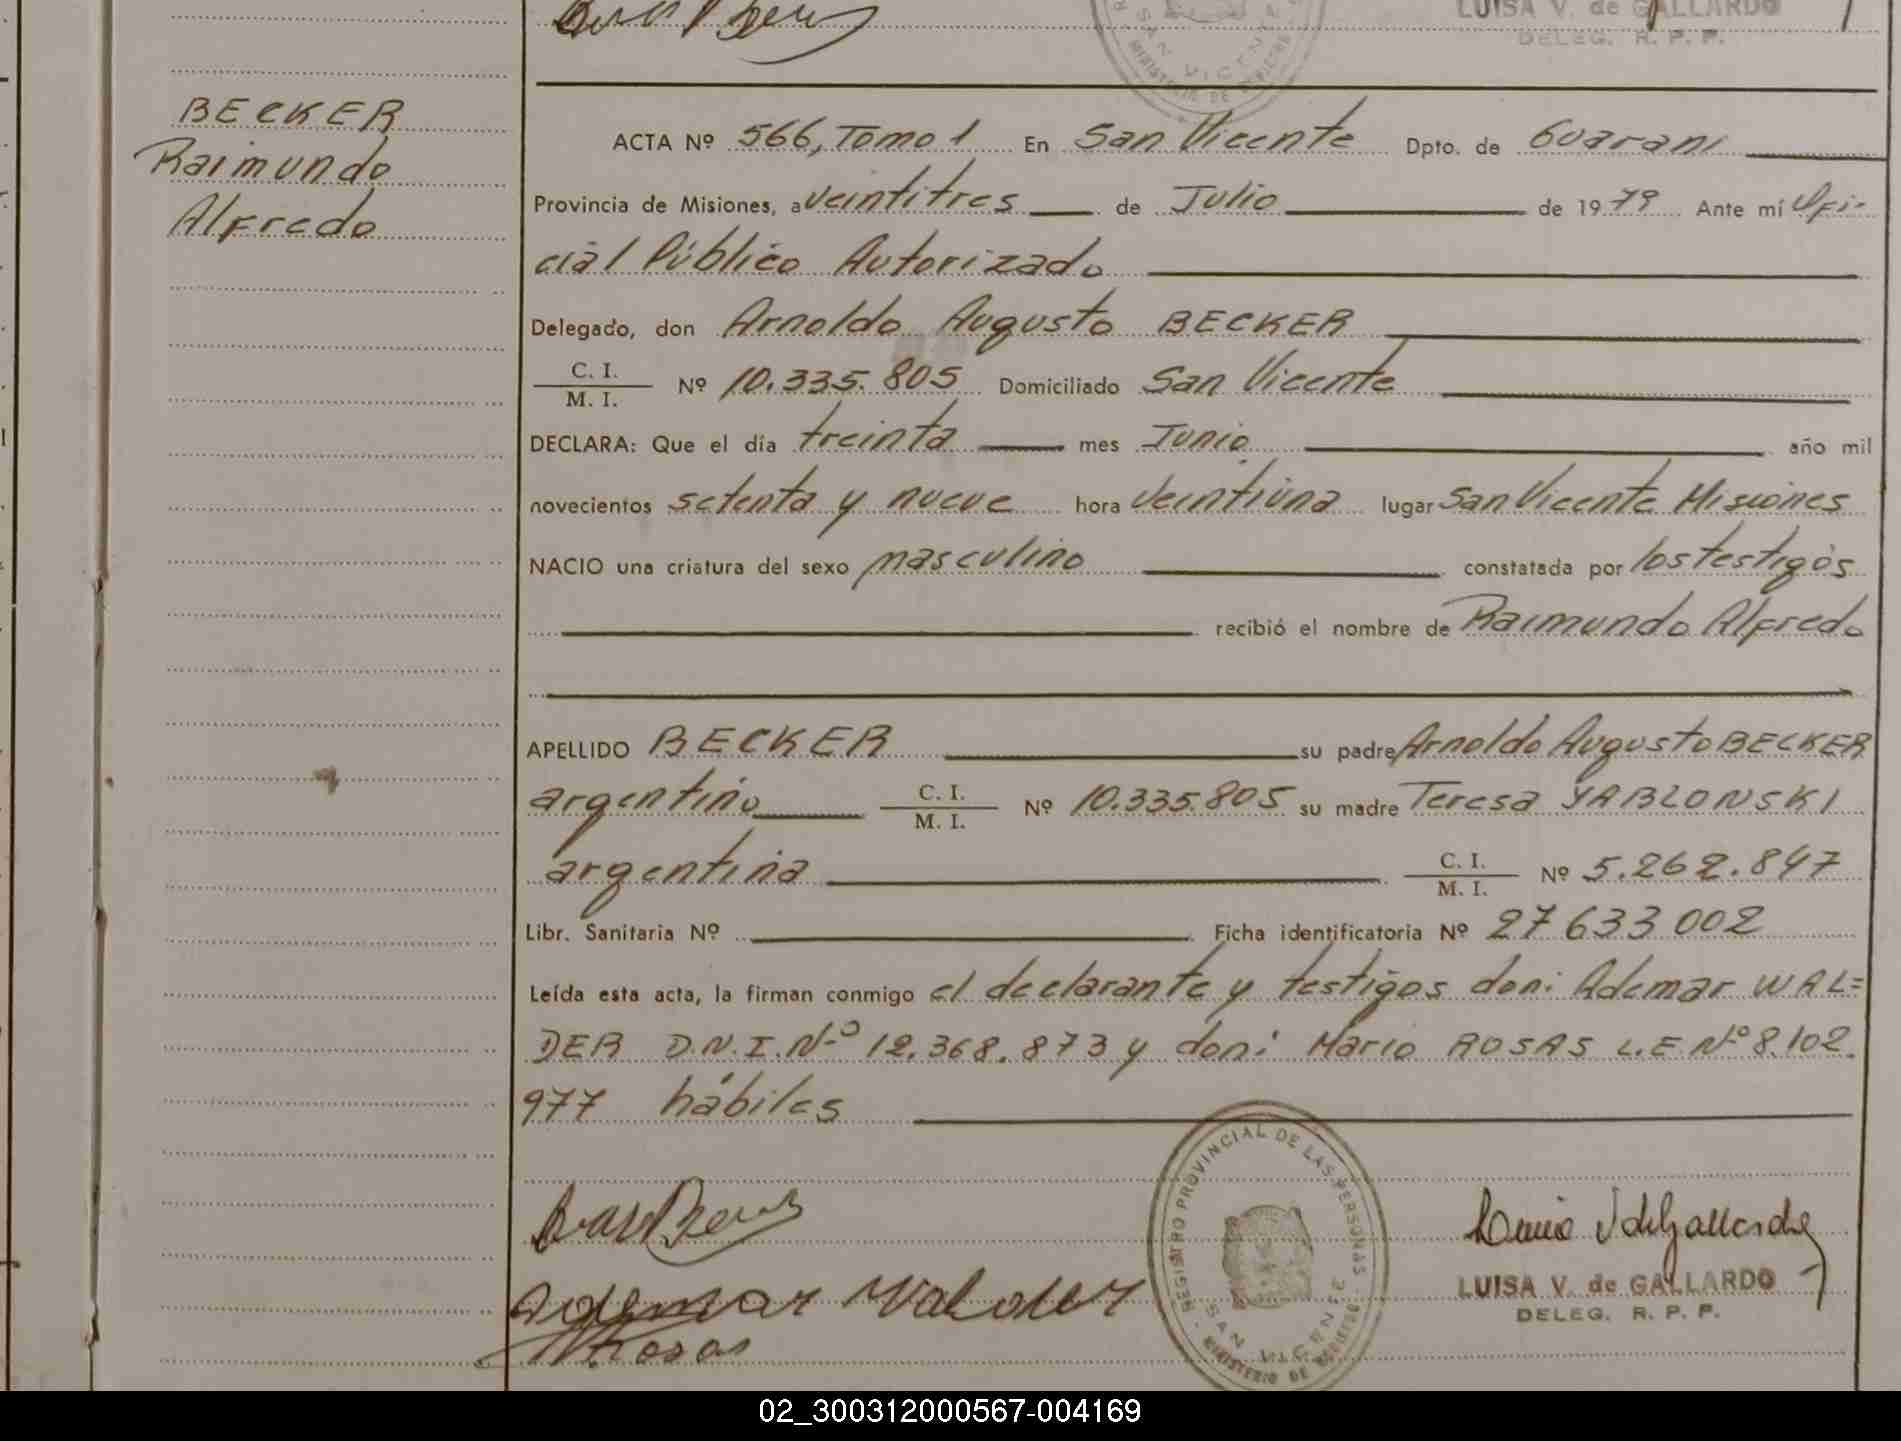 LUISA V. de GALLARDO
DELEG. R. P. P.
SAN VICENTE
MINISTERIO DE GOBIERNO
BECKER
Raimundo
Alfredo
ACTA Nº 566, Tomo 1 En San Vicente Dpto. de Guaraní
Provincia de Misiones, a veintitres de Julio de 1979 Ante mí Ofi-
cial Público Autorizado
Delegado, don Arnoldo Augusto BECKER
C. I.
M. I. Nº 10.335.805 Domiciliado San Vicente
DECLARA: Que el día treinta mes Junio año mil
novecientos setenta y nueve hora veintiuna lugar San Vicente Misiones
NACIO una criatura del sexo masculino constatada por los testigos
recibió el nombre de Raimundo Alfredo
APELLIDO BECKER su padre Arnoldo Augusto BECKER
argentino C. I. M. I. Nº 10.335.805 su madre Teresa YABLONSKI
argentina C. I. M. I. Nº 5.262.847
Libr. Sanitaria Nº Ficha identificatoria Nº 27 633 002
Leída esta acta, la firman conmigo el declarante y testigos don: Ademar WAL=
DER D.N.I. Nº 12.368.873 y don: Mario ROSAS L.E Nº 8.102.
977 hábiles
REGISTRO PROVINCIAL DE LAS PERSONAS
SAN VICENTE
MINISTERIO DE GOBIERNO
Ademar Walder
Rosas
Luisa V de Gallardo
LUISA V. de GALLARDO
DELEG. R. P. P.
02_300312000567-004169